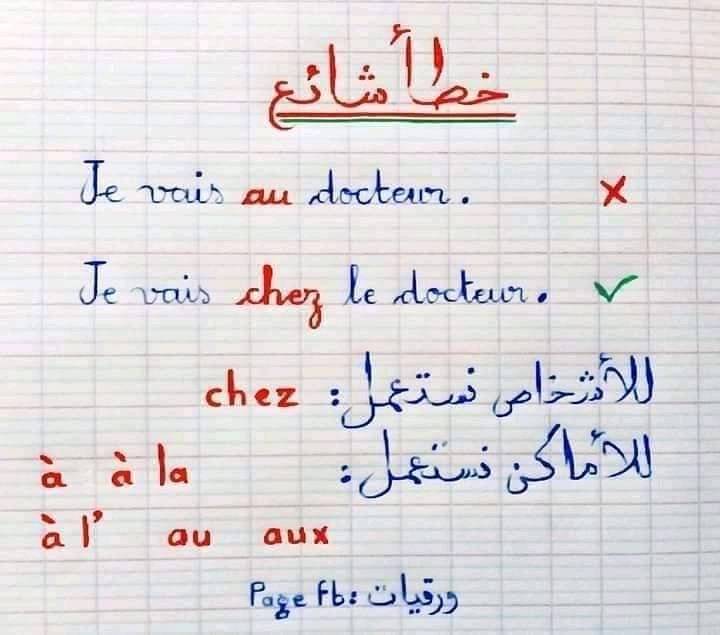 خطأ شائع
Je vais au docteur. ✗
Je vais chez le docteur. ✓
للأشخاص نستعمل: chez
للأماكن نستعمل: à à la
à l' au aux
Page Fb: ورقيات